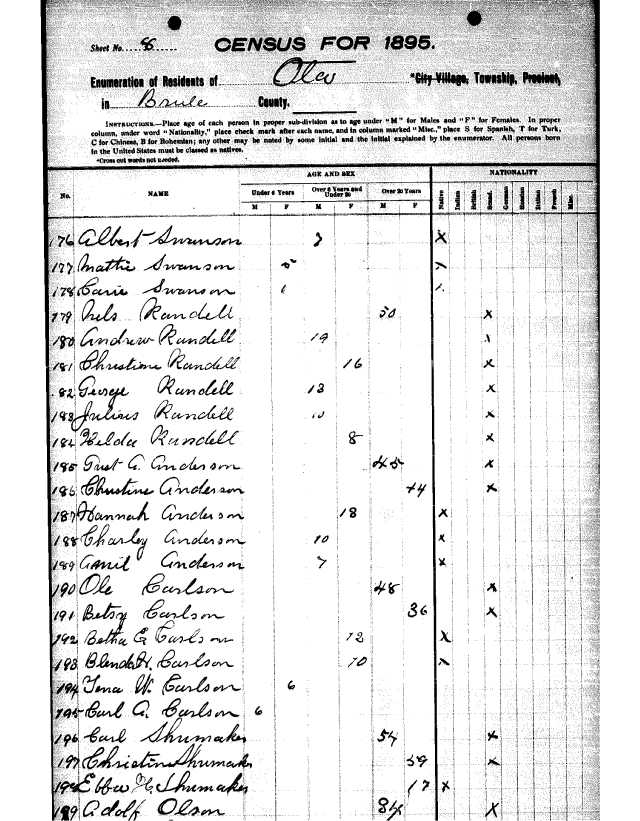 Sheet No. 8
CENSUS FOR 1895.
Enumeration of Residents of "City Village, Township, Precinct,
in Brule County.
INSTRUCTIONS.—Place age of each person in proper sub-division as to age under "M" for Males and "F" for Females. In proper
column, under word "Nationality," place check mark after each name, and in column marked "Misc.," place S for Spanish, T for Turk,
C for Chinese, B for Bohemian; any other may be noted by some initial and the initial explained by the enumerator. All persons born
in the United States must be classed as natives.
*Cross out words not needed.
No. NAME AGE AND SEX NATIONALITY
Under 6 Years Over 6 Years and Under 20 Over 20 Years
M F M F M F Native Indian British Scand. German Russian Italian French Misc.
176 Albert Swanson X
177 Mattie Swanson
178 Carie Swanson
179 Nels Randell 50 x
180 Andrew Randell 19 x
181 Christine Randell 16 x
182 George Randell 13 x
183 Julius Randell 10 x
184 Helda Randell 8 x
185 Gust A. Anderson 45 x
186 Christine Anderson 44 x
187 Hannah Anderson 18 x
188 Charley Anderson 10 x
189 Amil Anderson 7 x
190 Ole Carlson 48 x
191 Betsy Carlson 36 x
192 Betha E Carlson 12 x
193 Blenda H. Carlson 10 x
194 Tena W. Carlson 6
195 Carl A. Carlson 6
196 Carl Shumaker 54 x
197 Christine Shumaker 59 x
198 Ebba Shumaker 17 x
199 Adolf Olson 34 X